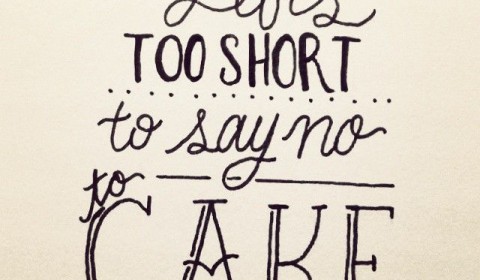 Life's
TOO SHORT
to say no
to
CAKE